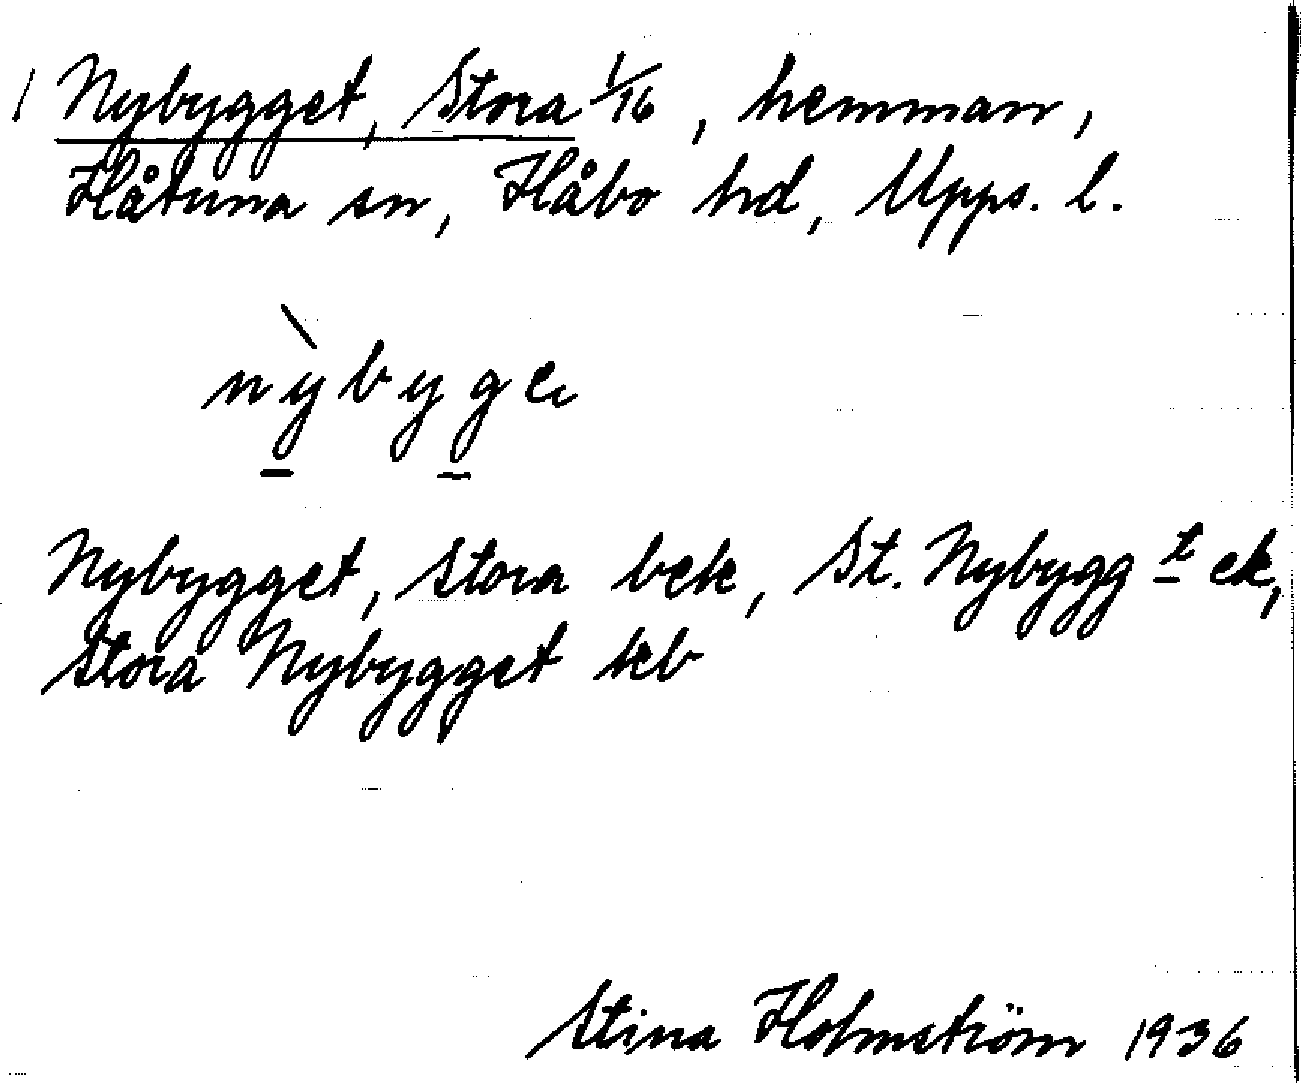 / Nybygget, Stora 1/16, hemman,
Håtuna sn, Håbo hd, Upps. l.
nỳbyge
Nybygget, Stora bek, St. Nybygg t ek,
Stora Nybygget keb
Stina Holmström 1936